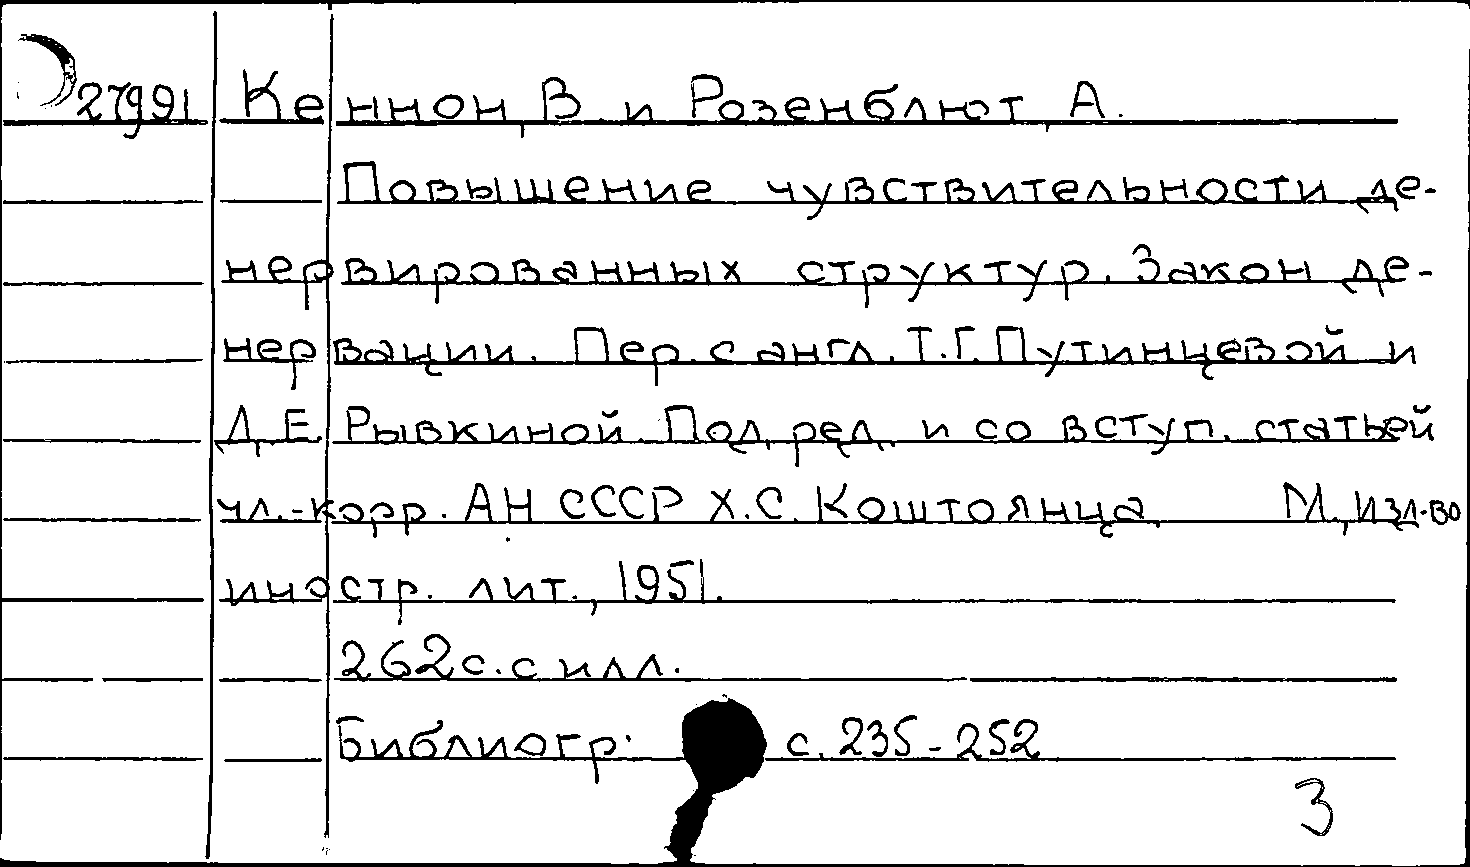 27991 Кеннон, В. и Розенблют, А.
Повышение чувствительности де-
нервированных структур. Закон де-
нервации. Пер. с англ. Т.Г. Путинцевой и
Д.Е. Рывкиной. Под ред. и со вступ. статьей
чл.-корр. АН СССР Х.С. Коштоянца. М., Изд-во
иностр. лит., 1951.
262 с. с илл.
Библиогр: с. 235-252
3